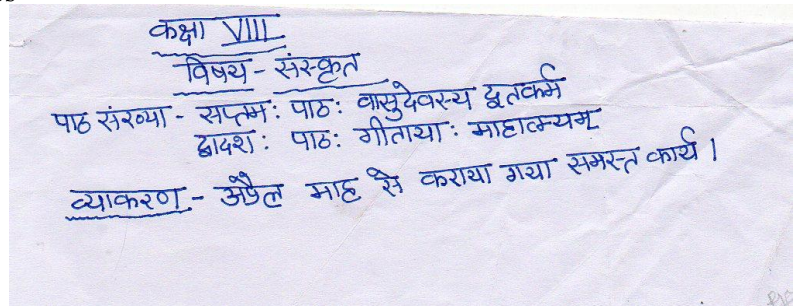 कक्षा VIII
विषय - संस्कृत
पाठ संख्या - सप्तम: पाठ: वासुदेवस्य द्वतकर्म
द्वादश: पाठ: गीताया: माहात्म्यम्
व्याकरण - अप्रैल माह से कराया गया समस्त कार्य।